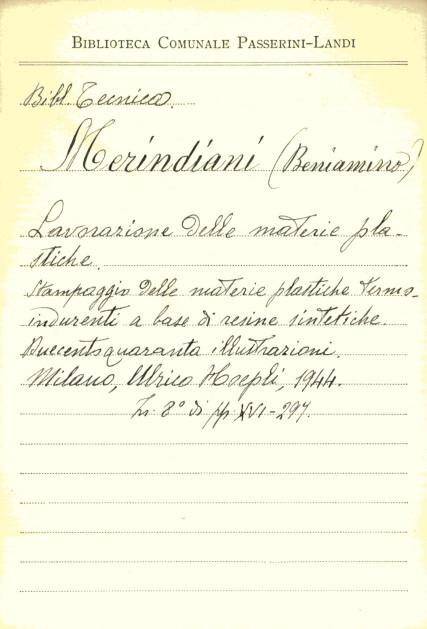 BIBLIOTECA COMUNALE PASSERINI-LANDI
Bibl. Tecnica.
Merindiani (Beniamino)
Lavorazione delle materie pla-
stiche.
Stampaggio delle materie plastiche termo-
indurenti a base di resine sintetiche.
Duecentoquaranta illustrazioni.
Milano, Ulrico Hoepli, 1944.
In 8° di pp. XVI-297.